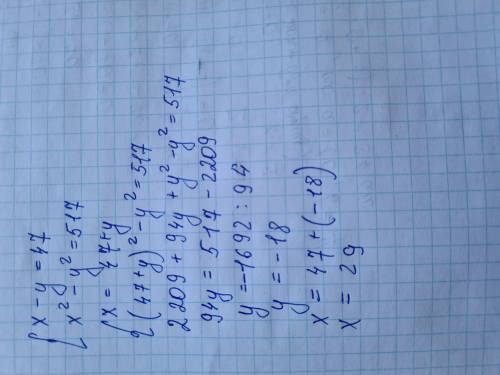 { x - y = 47
x² - y² = 517
{ x = 47 + y
(47 + y)² - y² = 517
2209 + 94y + y² - y² = 517
94y = 517 - 2209
y = -1692 : 94
y = -18
x = 47 + (-18)
x = 29